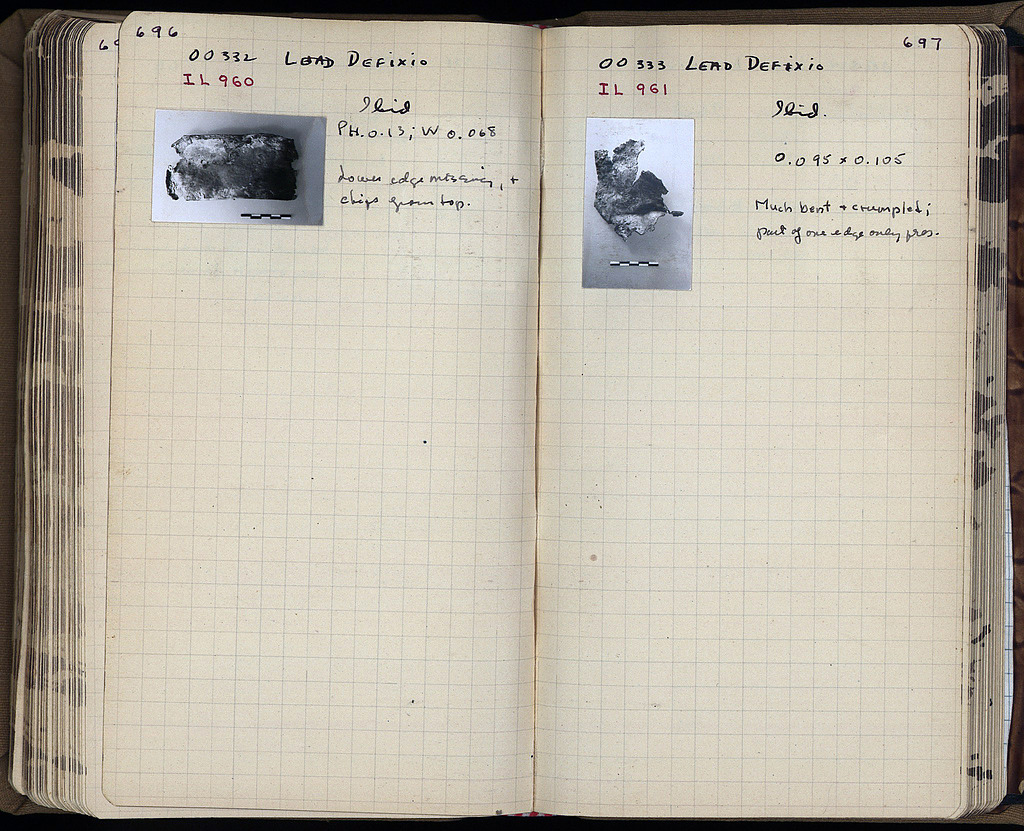 696
OO 332 LEAD DEFIXIO
IL 960
Ibid
PH. 0.13; W 0.068
Lower edge missing, +
chips from top.
697
OO 333 LEAD DEFIXIO
IL 961
Ibid.
0.095 x 0.105
Much bent + crumpled;
part of one edge only pres.